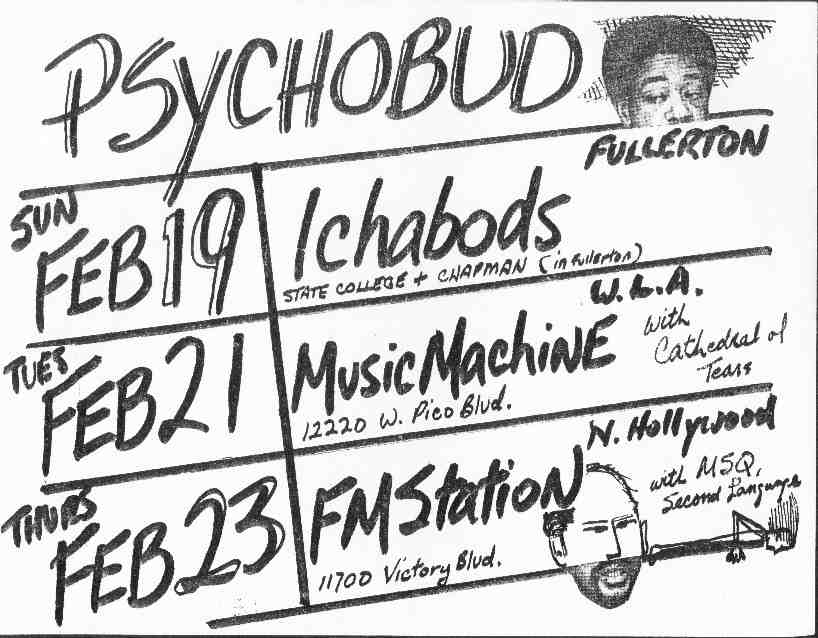 PSYCHOBUD
FULLERTON
SUN
FEB 19
Ichabods
STATE COLLEGE + CHAPMAN (in Fullerton)
W. L.A.
TUES
FEB 21
Music MachiNE
12220 W. Pico Blvd.
with
Cathedral of
Tears
N. Hollywood
THURS
FEB 23
FM Station
11700 Victory Blvd.
with MSQ,
Second Language